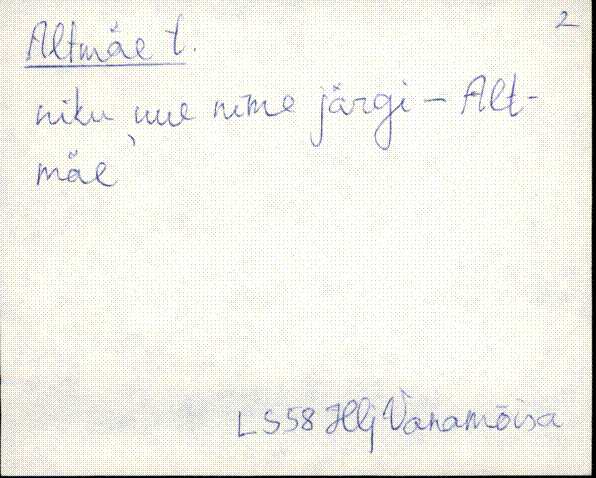 2
Altmäe t.
niku uue nime järgi – Alt-
mäe
LS58 Hlj Vanamõisa